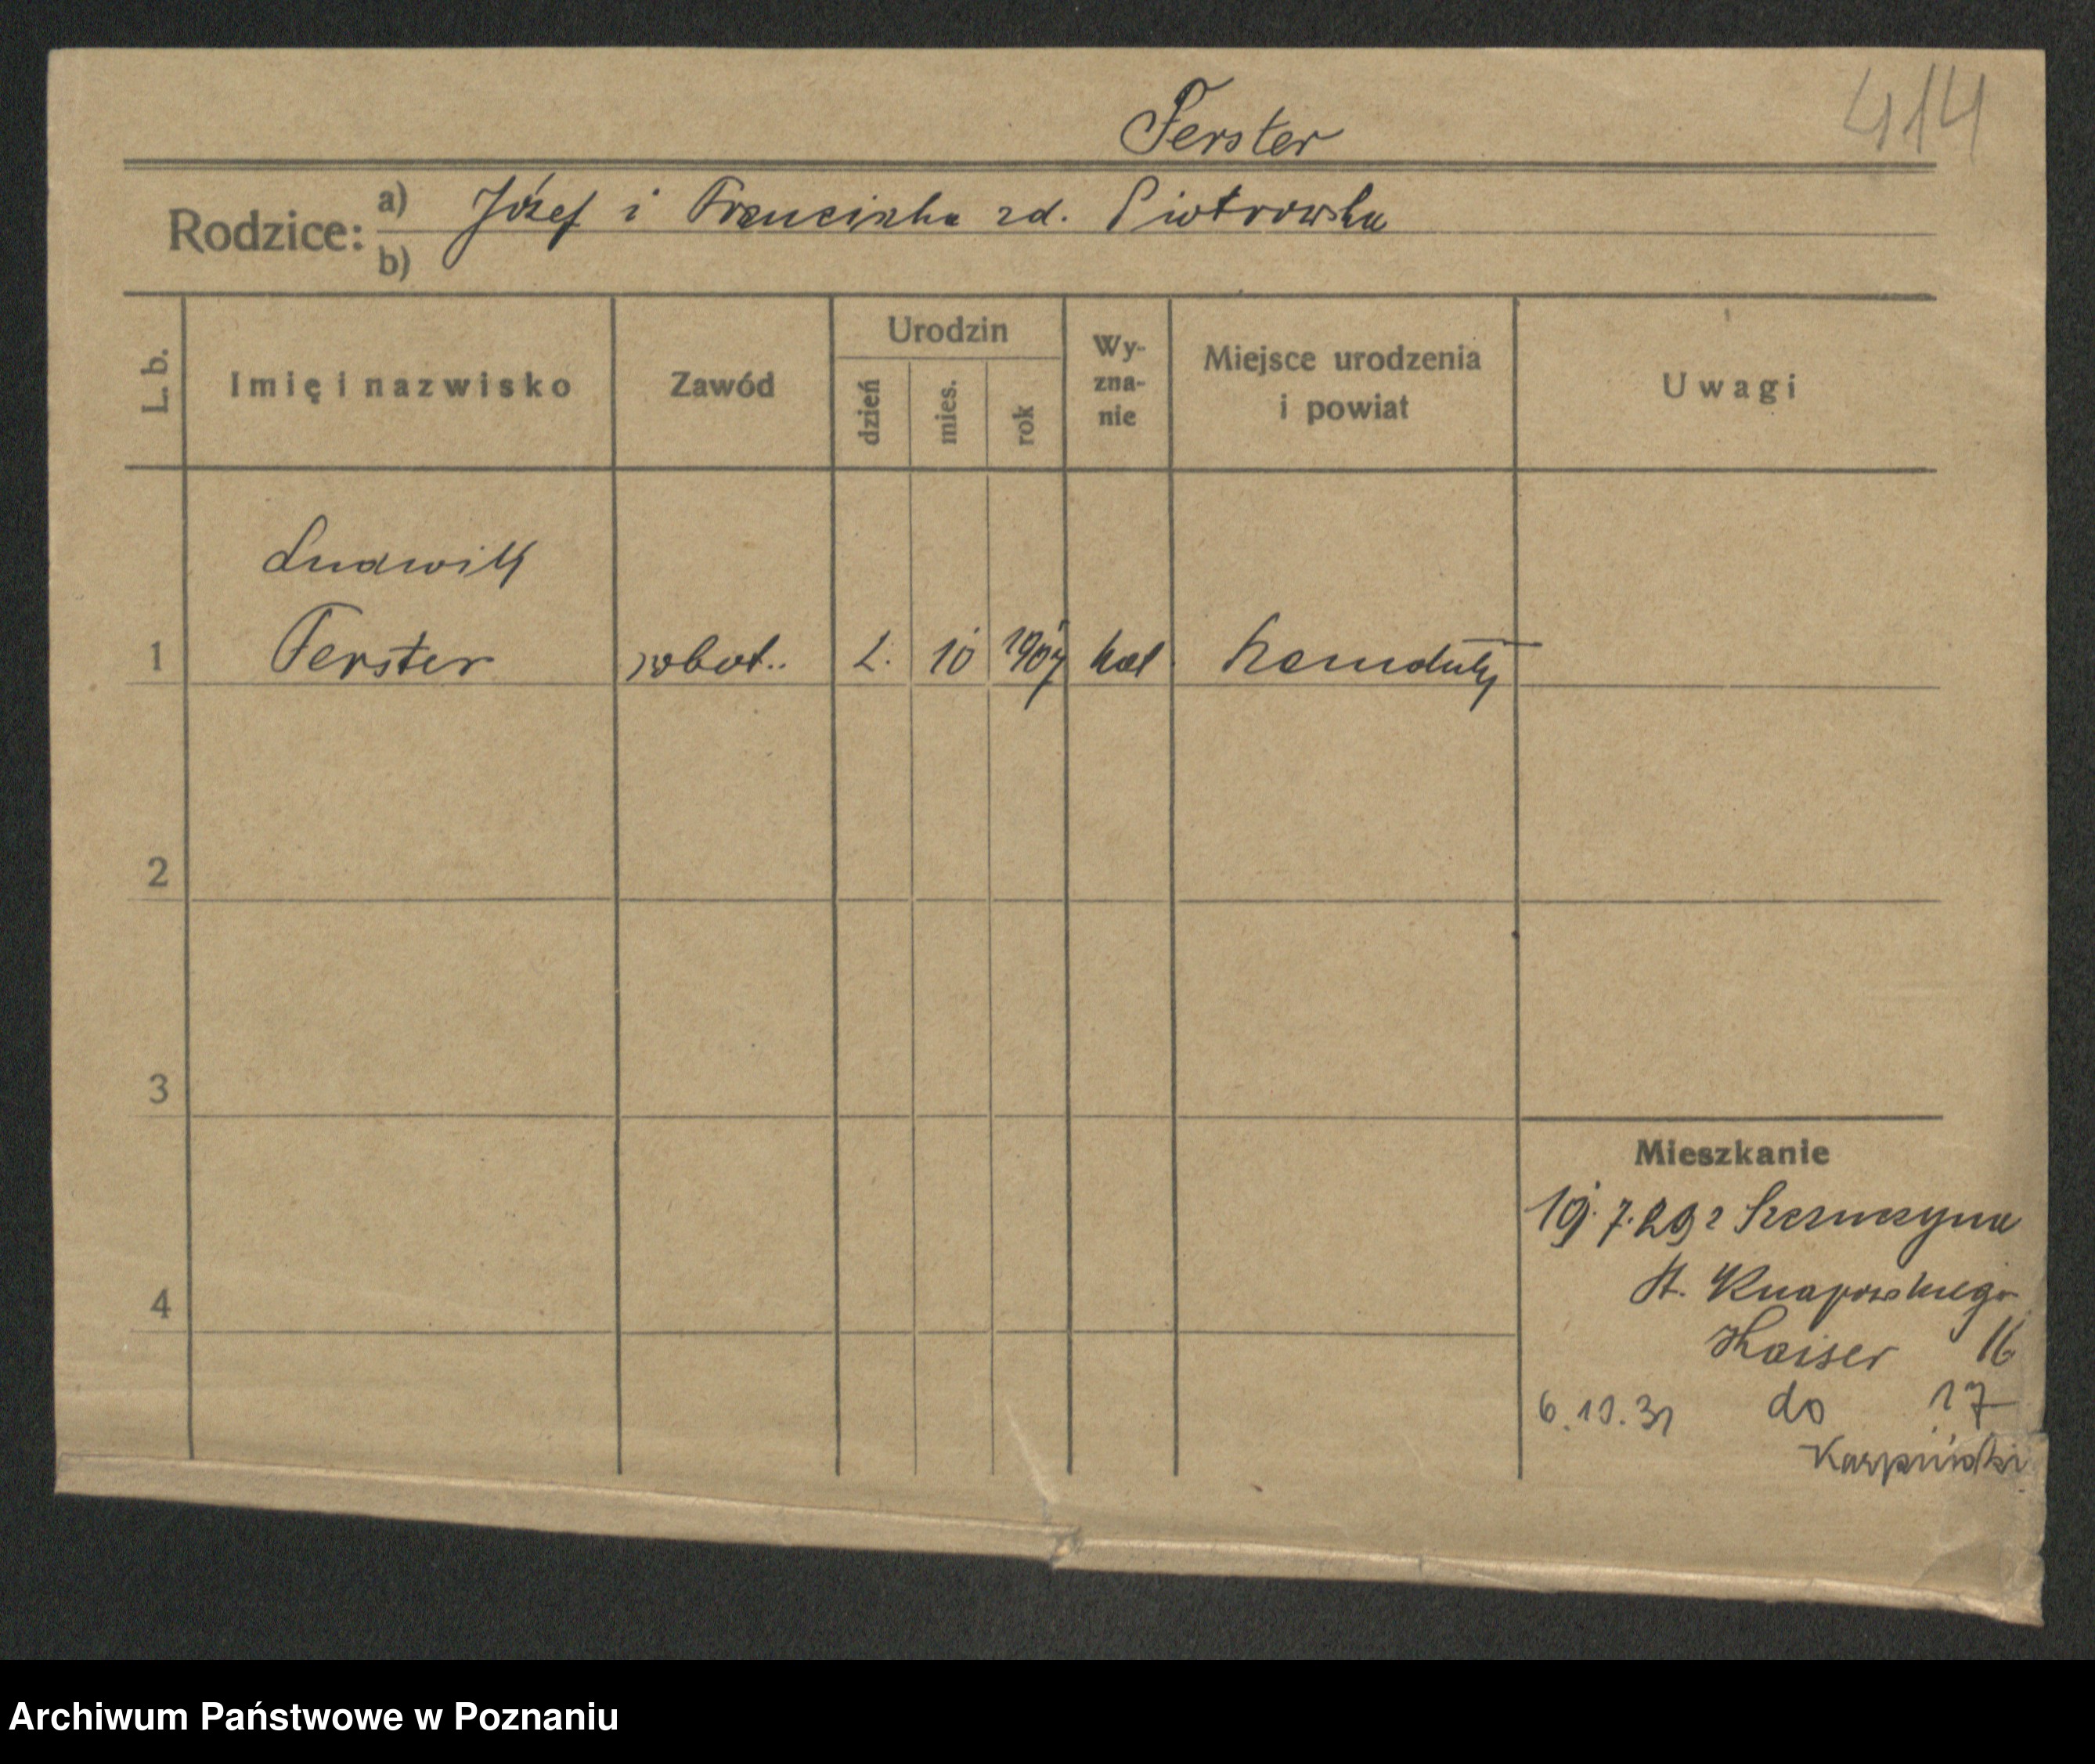 Ferster
414
Rodzice: a) Józef i Franciszka zd. Piotrowska
b)
L. b.
Imię i nazwisko
Zawód
Urodzin
dzień
mies.
rok
Wy-
zna-
nie
Miejsce urodzenia
i powiat
Uwagi
Ludwik
1 Ferster robot.. 2. 10 1907 kat.
2
3
4
Mieszkanie
19.7.29 z
St. Knapowskiego
Kaiser 16
6.10.31 do 17
Karpiński
Archiwum Państwowe w Poznaniu